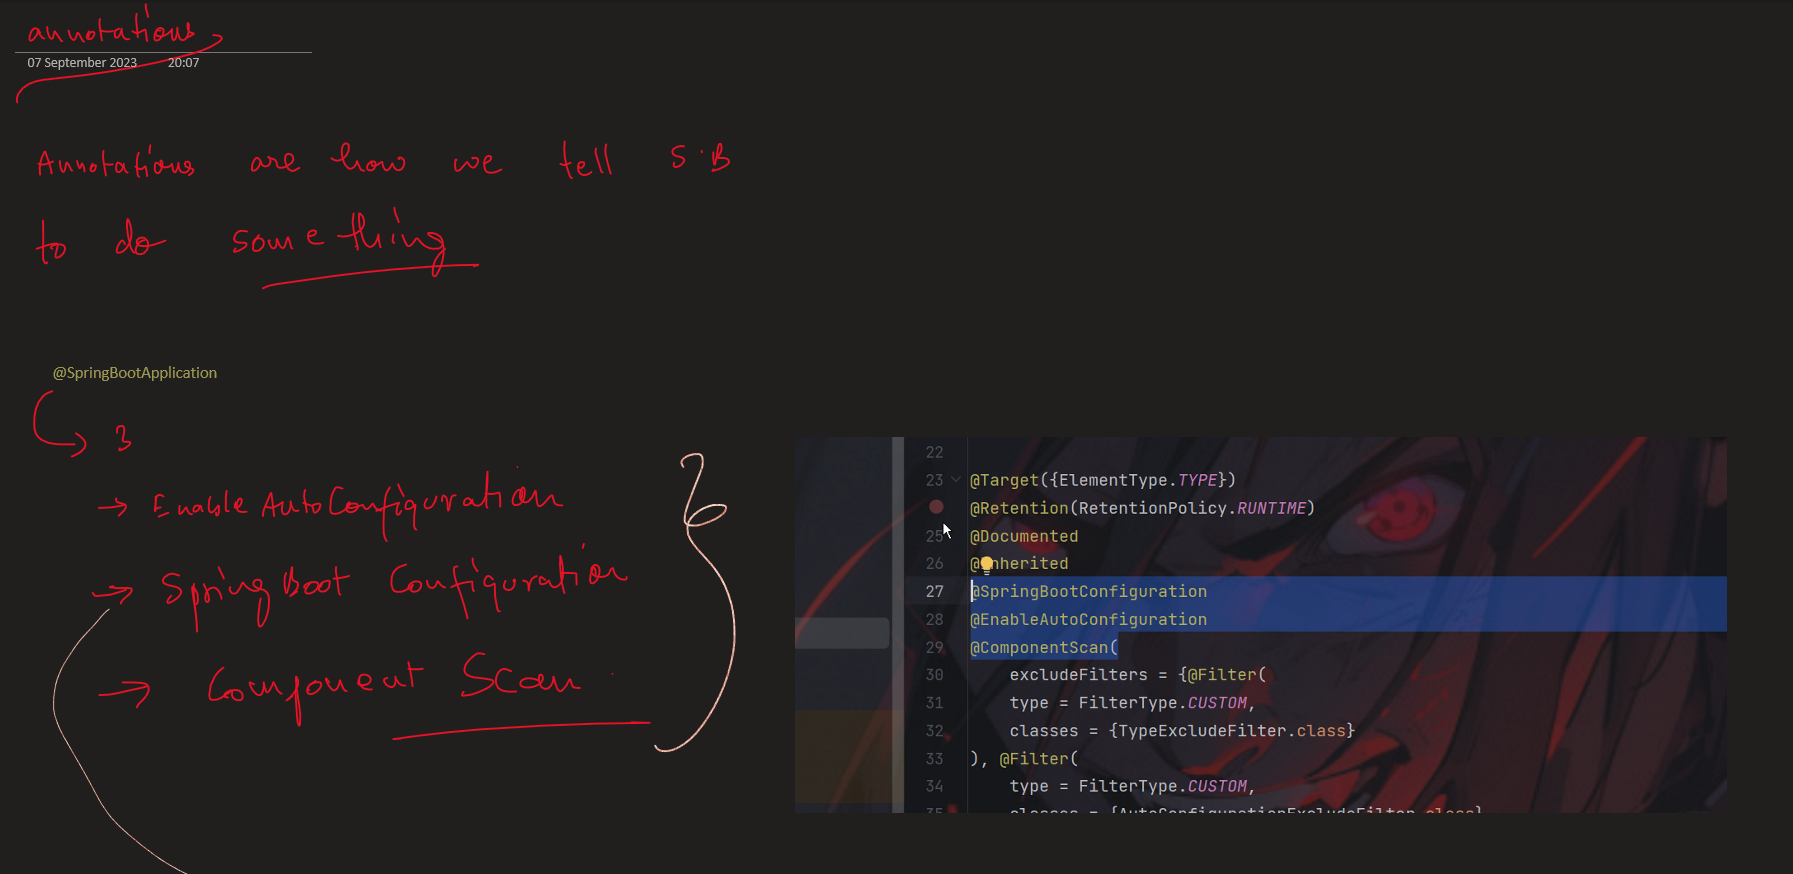 annotations
07 September 2023 20:07
Annotations are how we tell S.B
to do something
@SpringBootApplication
3
→ Enable AutoConfiguration
→ SpringBoot Configuration
→ Component Scan
22
23 @Target({ElementType.TYPE})
@Retention(RetentionPolicy.RUNTIME)
25 @Documented
26 @Inherited
27 @SpringBootConfiguration
28 @EnableAutoConfiguration
29 @ComponentScan(
30 excludeFilters = {@Filter(
31 type = FilterType.CUSTOM,
32 classes = {TypeExcludeFilter.class}
33 ), @Filter(
34 type = FilterType.CUSTOM,
35 classes = {AutoConfigurationExcludeFilter.class}